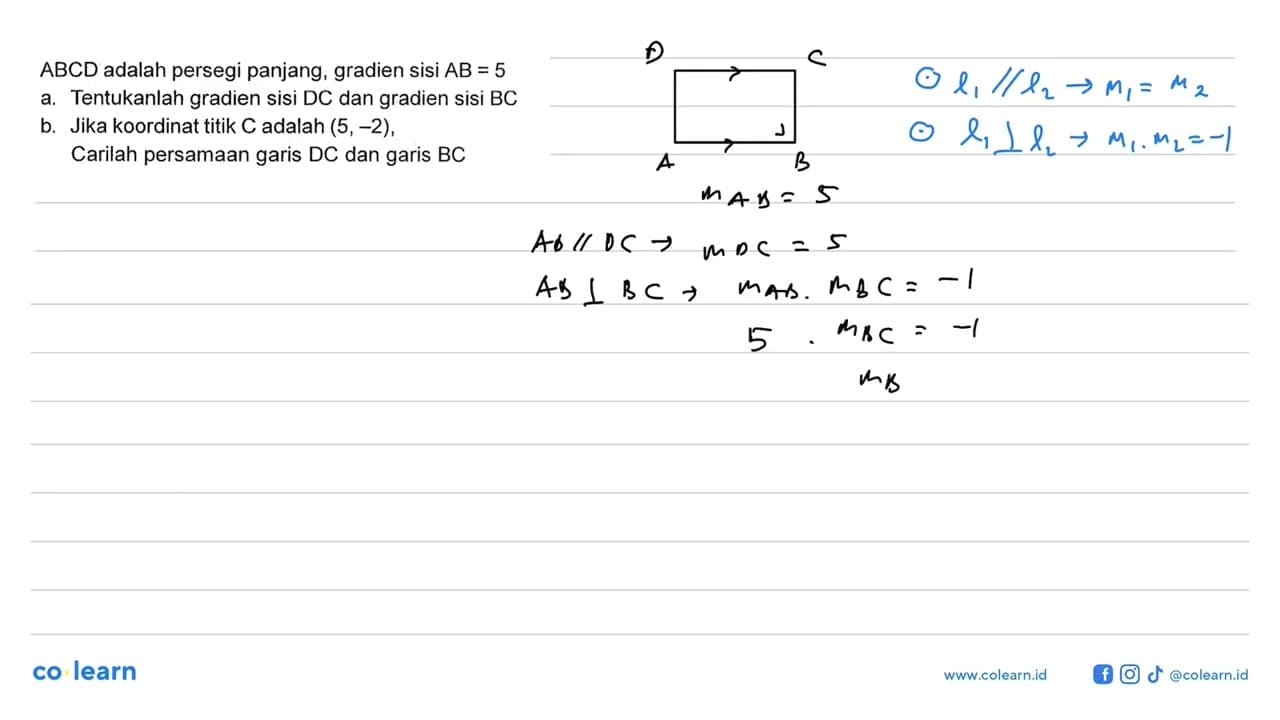 ABCD adalah persegi panjang, gradien sisi AB = 5
a. Tentukanlah gradien sisi DC dan gradien sisi BC
b. Jika koordinat titik C adalah (5, –2),
Carilah persamaan garis DC dan garis BC
D C
A B
⊙ l₁ // l₂ → m₁ = m₂
⊙ l₁ ⊥ l₂ → m₁ . m₂ = -1
m AB = 5
AB // DC → m DC = 5
AB ⊥ BC → m AB . m BC = -1
5 . m BC = -1
m B
co learn
www.colearn.id
@colearn.id